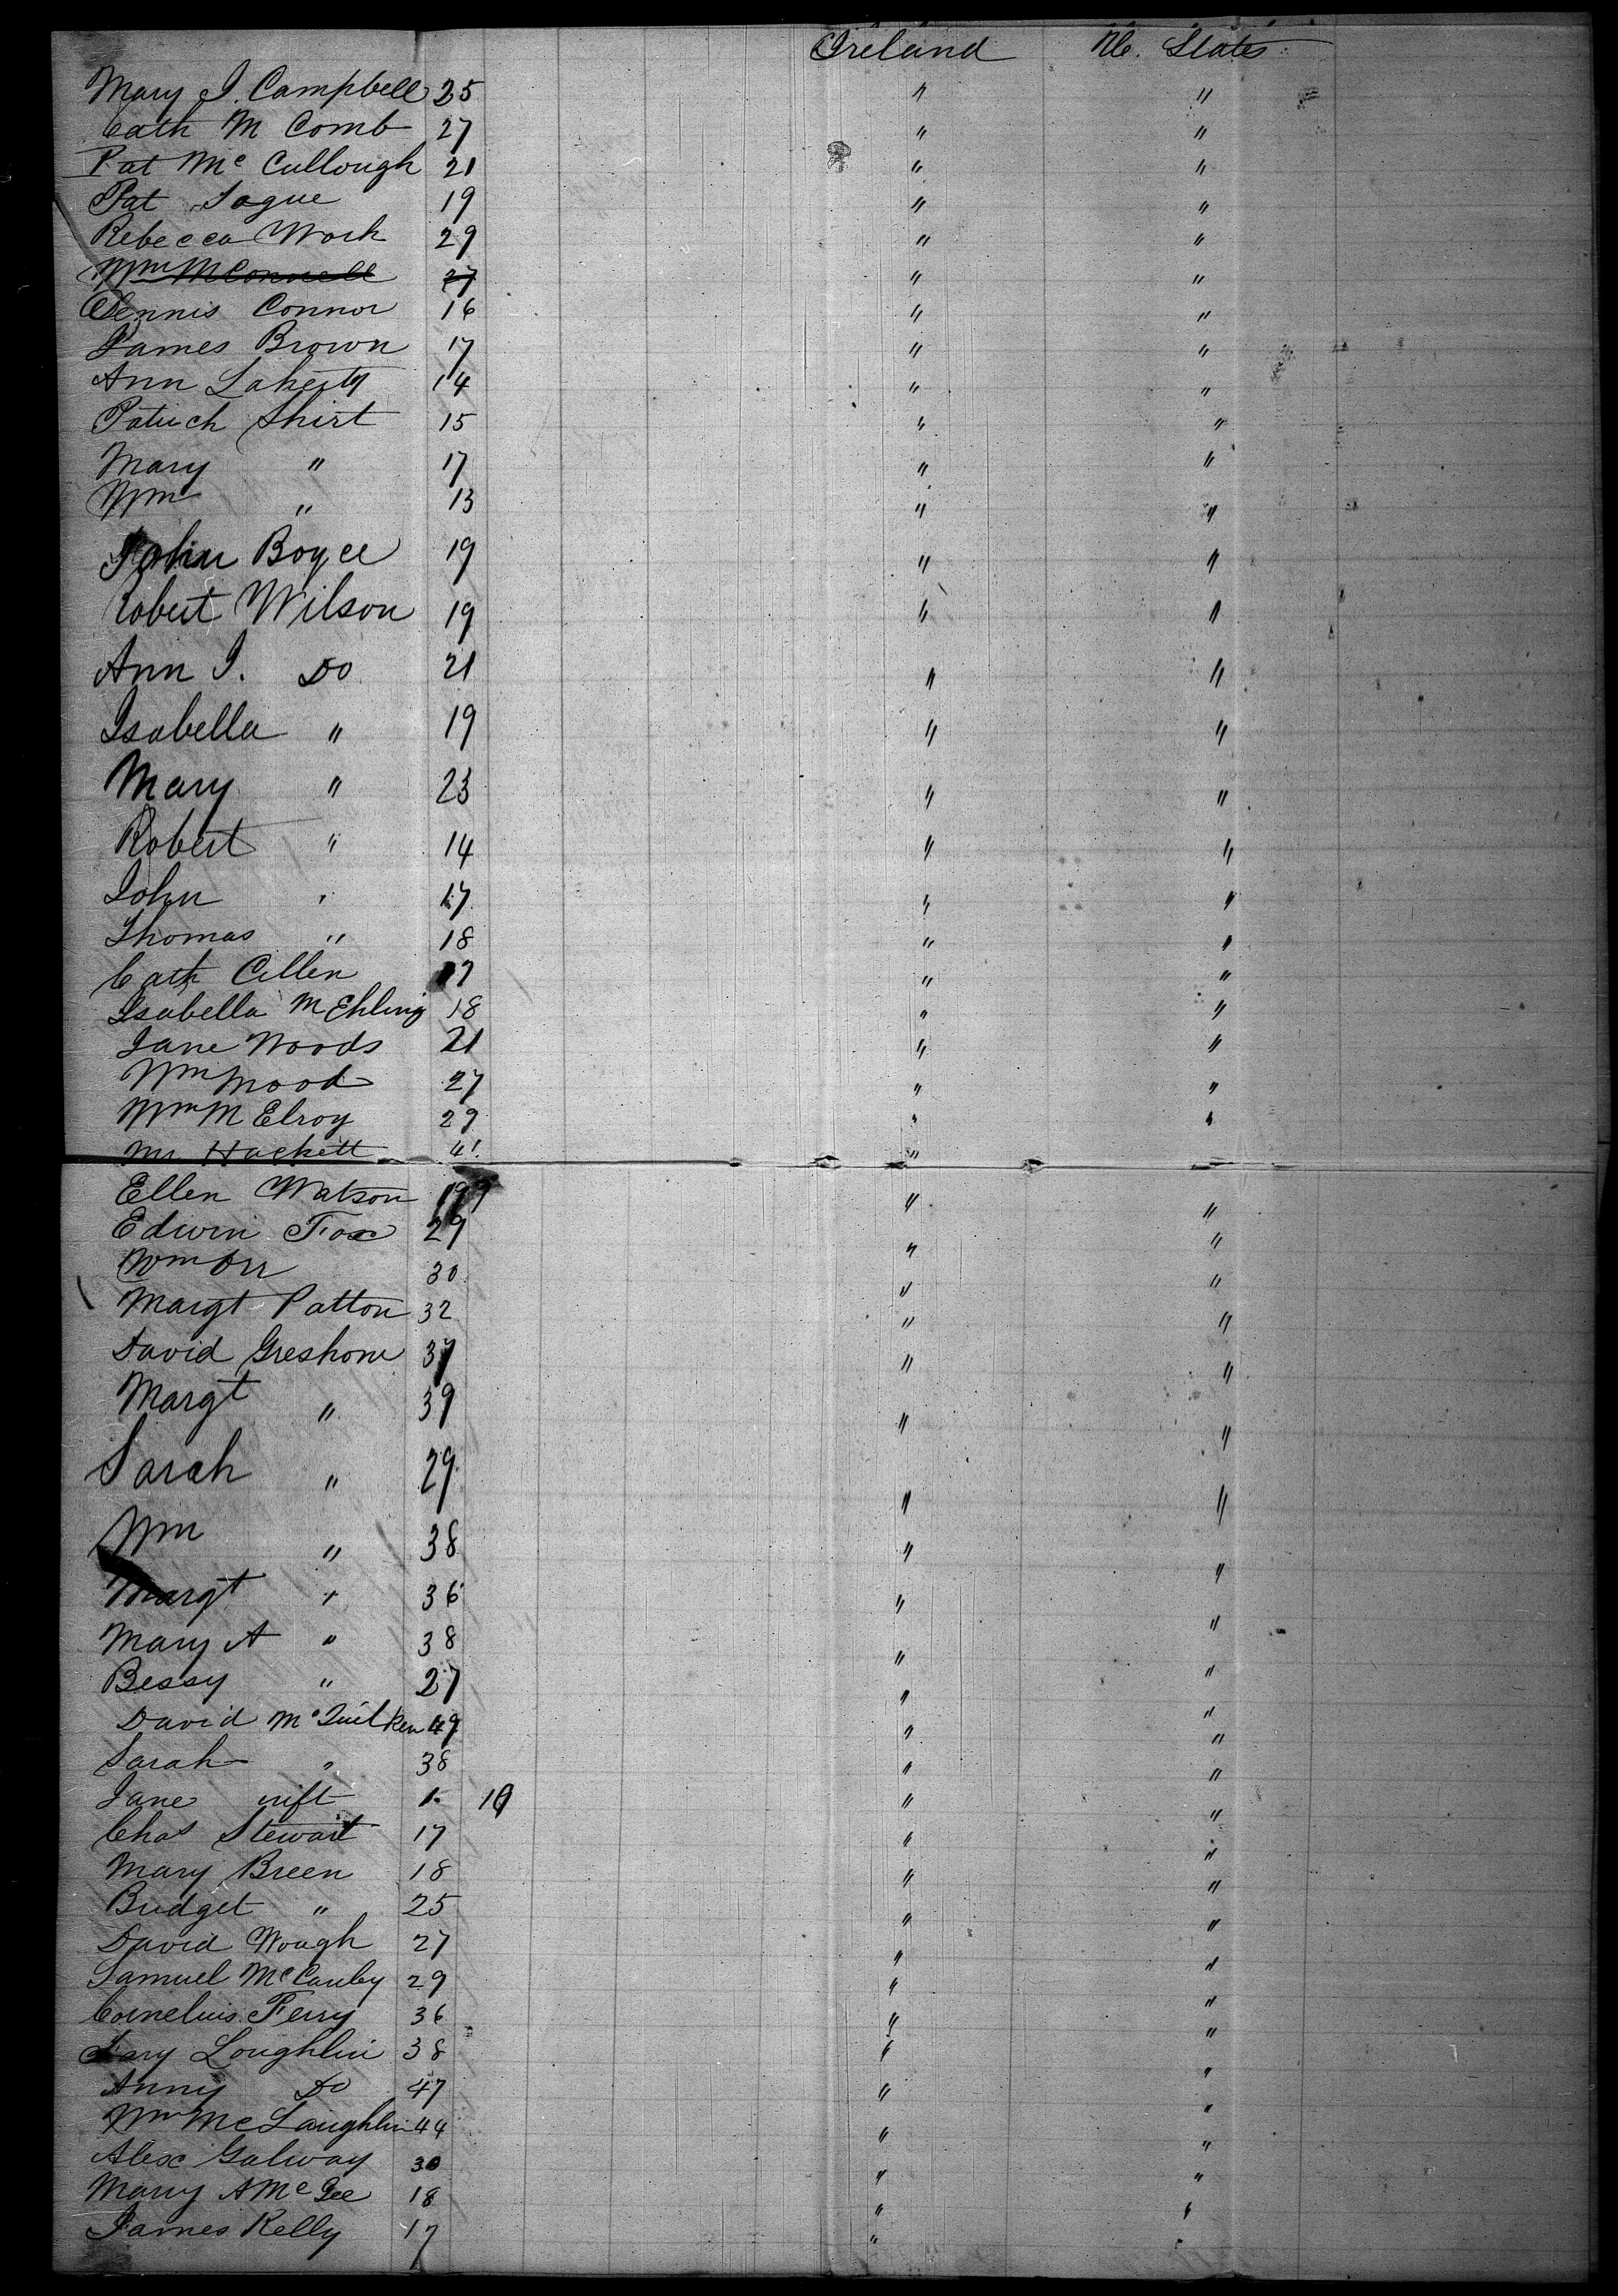 Ireland Ud. States
Mary J. Campbell 25 " "
Cath M Comb 27 " "
Pat Mc Cullough 21 " "
Pat Logue 19 " "
Rebecca Work 29 " "
Wm McConnell 27 " "
Dennis Connor 16 " "
James Brown 17 " "
Ann Laherty 14 " "
Patrick Shirt 15 " "
Mary " 17 " "
Wm " 13 " "
John Boyce 19 " "
Robert Wilson 19 " "
Ann J. Do 21 " "
Isabella " 19 " "
Mary " 23 " "
Robert " 14 " "
John " 17 " "
Thomas " 18 " "
Cath Cullen 17 " "
Isabella M Ehling 18 " "
Jane Woods 21 " "
Wm Wood 27 " "
Wm M Elroy 29 " "
Mr Hackett 41 "
Ellen Watson 19 " "
Edwin Fox 29 " "
Wm Orr 30 " "
Margt Patton 32 " "
David Greshom 37 " "
Margt " 39 " "
Sarah " 29 " "
Wm " 38 " "
Margt " 36 " "
Mary A " 38 " "
Bessy " 27 " "
David Mc Quilken 49 " "
Sarah " 38 " "
Jane inft 1 10 " "
Chas Stewart 17 " "
Mary Breen 18 " "
Bridget " 25 " "
David Wough 27 " "
Samuel McCauley 29 " "
Cornelius Ferry 36 " "
Loughlin 38 " "
Anny Do 47 " "
Wm McLaughlin 44 " "
Alex Galway 30 " "
Mary A McGee 18 " "
James Kelly 17 " "